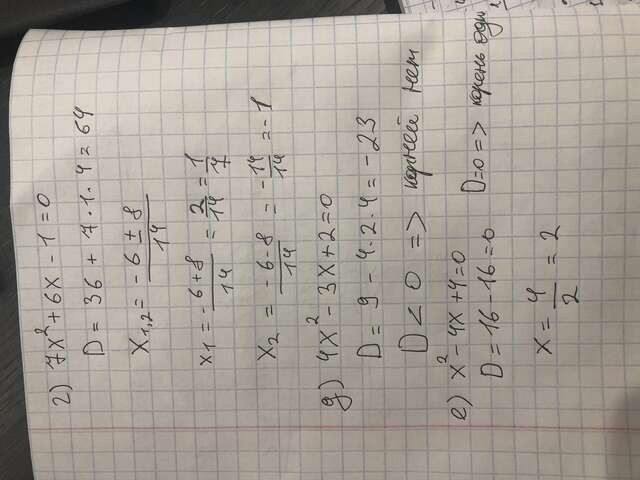 г) 7x² + 6x - 1 = 0
D = 36 + 7 · 1 · 4 = 64
x₁,₂ = -6 ± 8 / 14
x₁ = -6 + 8 / 14 = 2/14 = 1/7
x₂ = -6 - 8 / 14 = -14/14 = -1
д) 4x² - 3x + 2 = 0
D = 9 - 4 · 2 · 4 = -23
D < 0 => корней нет
е) x² - 4x + 4 = 0
D = 16 - 16 = 0 D = 0 => корень оди
x = 4/2 = 2